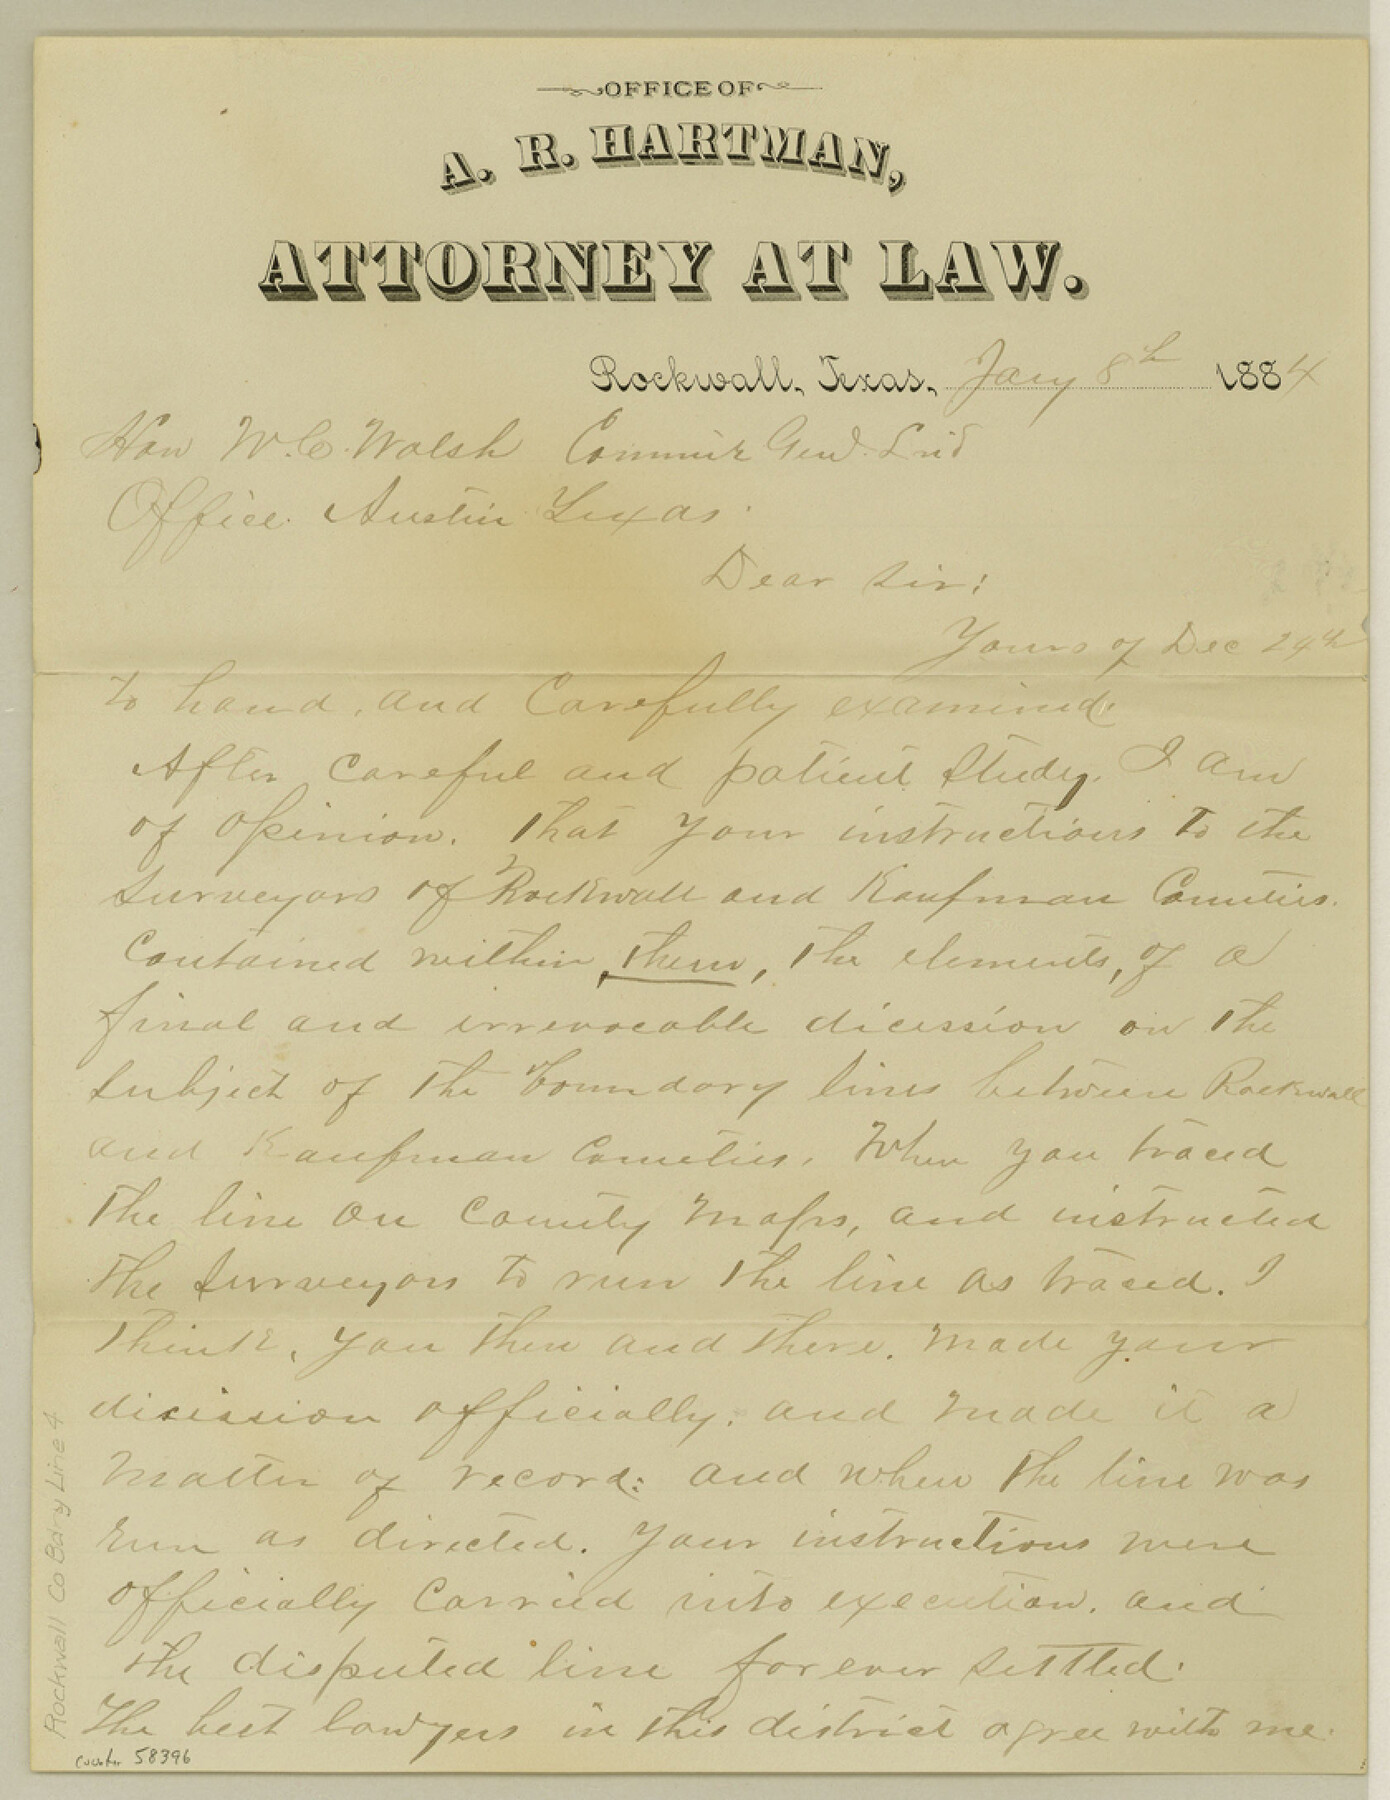 OFFICE OF
A. R. HARTMAN,
ATTORNEY AT LAW.
Rockwall, Texas, Jany 8th 1884
Hon W. C. Walsh Commir Genl. Lnd
Office. Austin Texas.
Dear Sir:
Yours of Dec 29th
to hand, and Carefully examined.
After careful and patient Study. I am
of Opinion. That your instructions to the
Surveyors of Rockwall and Kaufman Counties.
Contained within, them, the elements, of a
final and irrevocable dicession on the
Subject of the boundary lines between Rockwall
and Kaufman Counties. When you traced
the line on County Maps, and instructed
the Surveyors to run the line as traced. I
think, you then and there. made your
dicission officially. and made it a
matter of record: and when the line was
run as directed. Your instructions were
officially Carried into execution. and
the disputed line forever settled.
The best lawyers in this district agree with me.
Rockwall Co Bdry Line 4
counter 58396